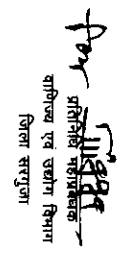 प्रतिनिधि महाप्रबंधक
वाणिज्य एवं उद्योग विभाग
जिला सरगुजा